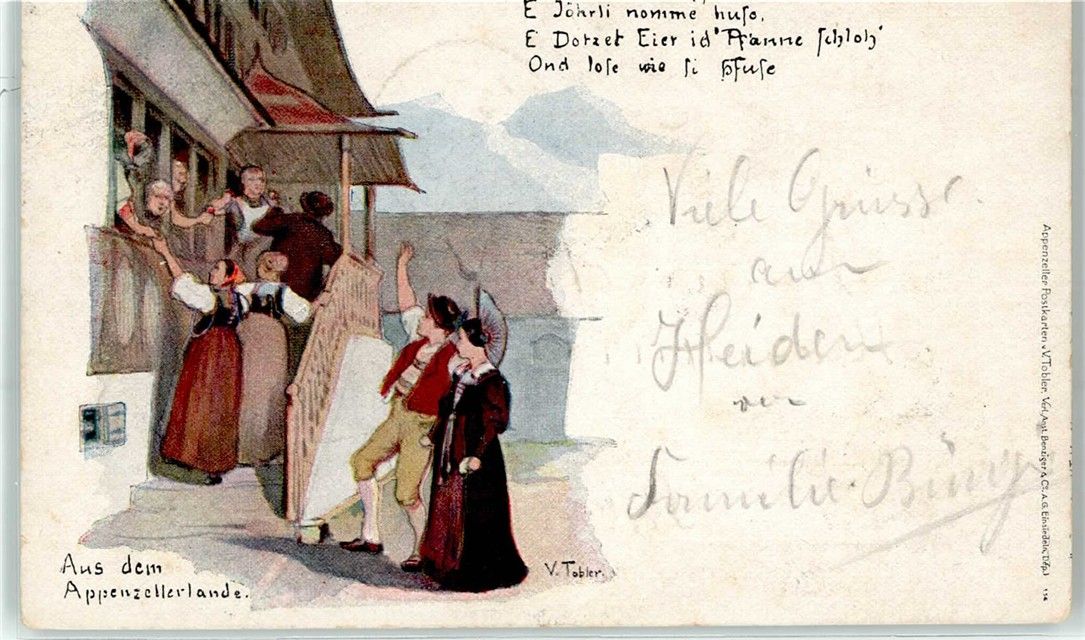 E Jöhrli nomme huso,
E Dotzet Eier id' Pfanne schloh'
Ond lose wie si pfuse
Viele Grüsse
aus
Heiden
von
Familie
Aus dem
Appenzellerlande.
V. Tobler.
Appenzeller Postkarten v. V. Tobler. Verl. Anst. Benziger & Co. A.G. Einsiedeln. (Dép.)